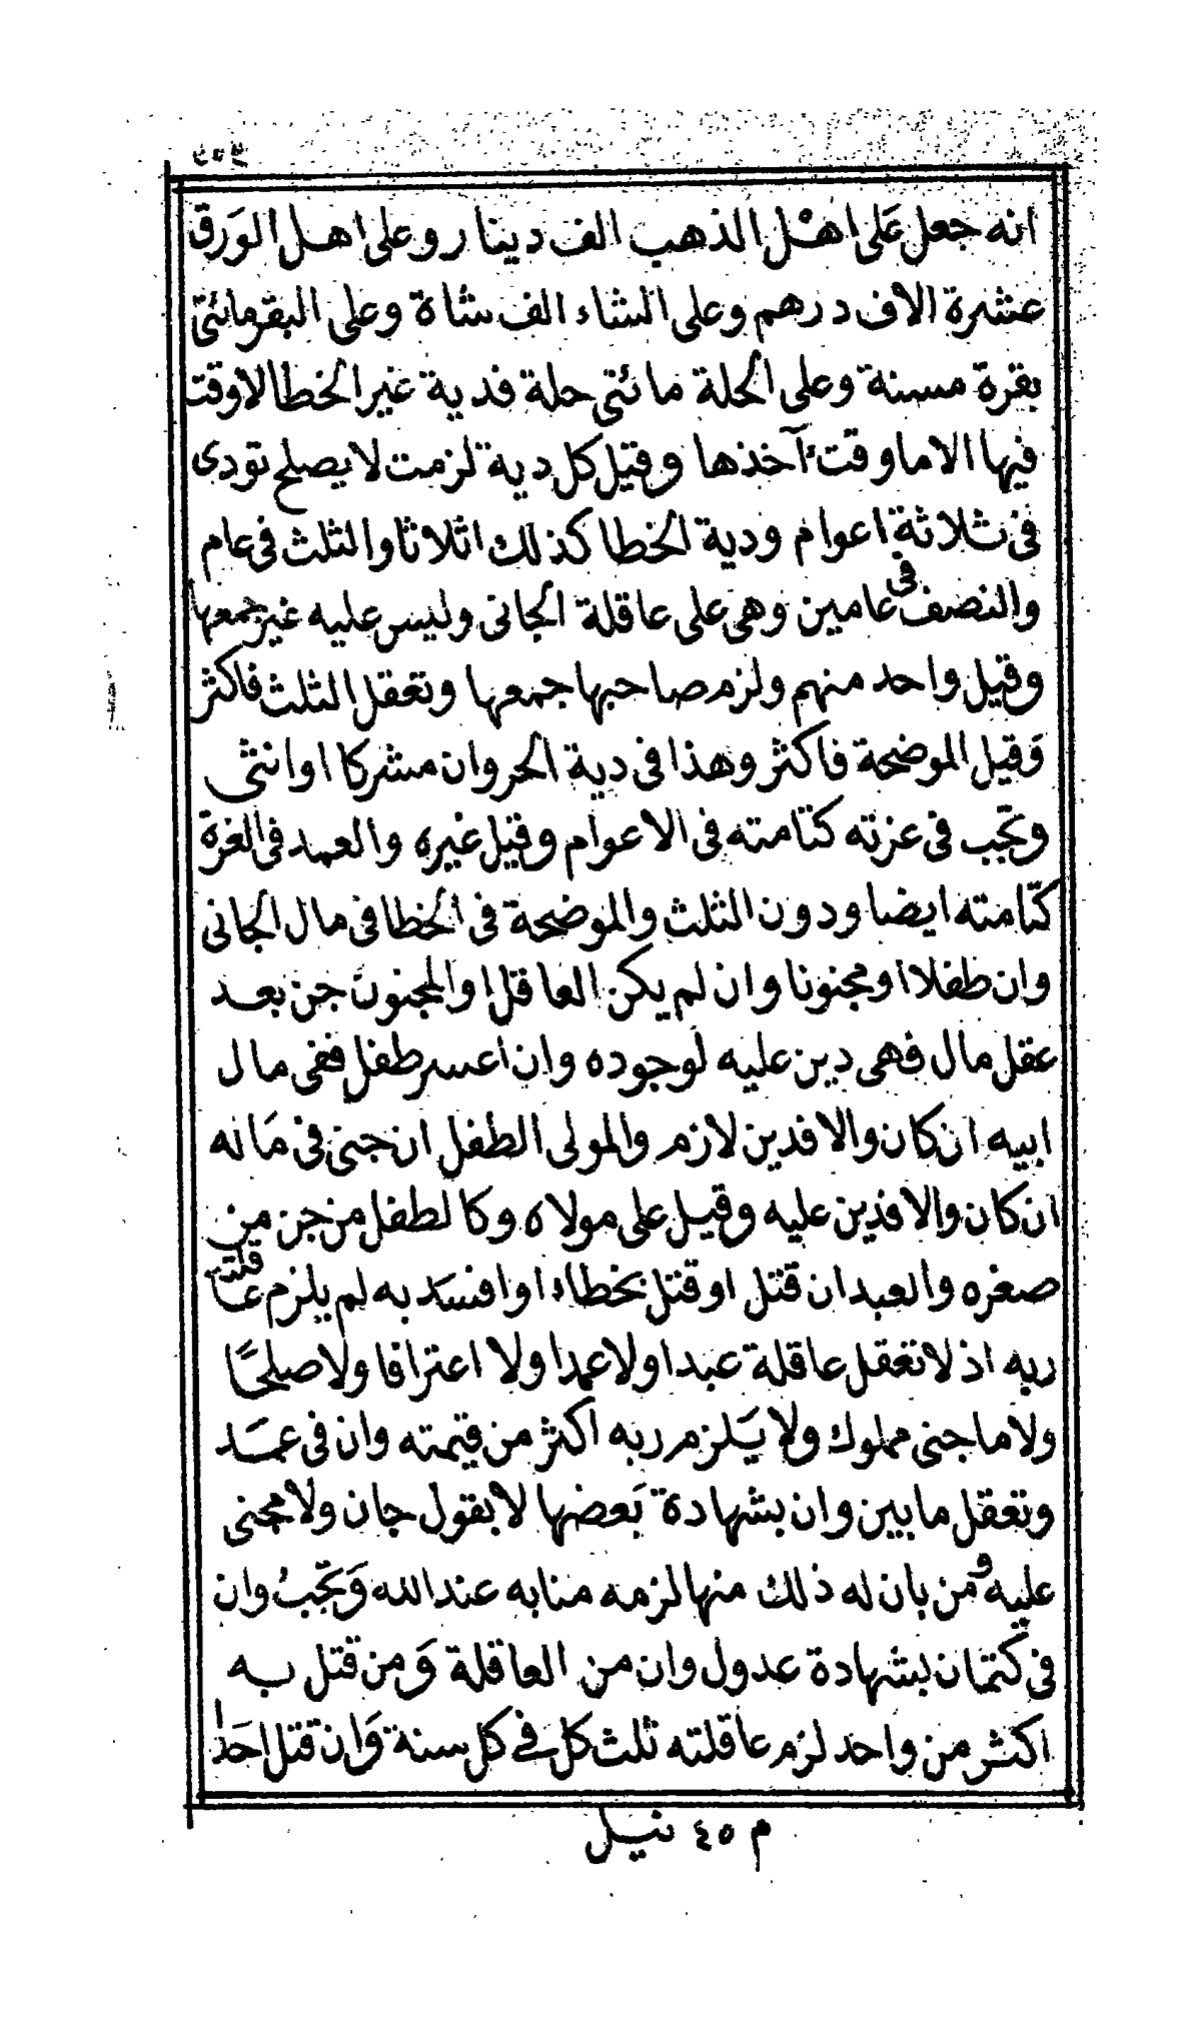 انه جعل عَلى اهْل الذهب الف دينار وعلى اهل الوَرق
عشرة الاف درهم وعلى الشاء الف شاة وعلى البقر مائتى
بقرة مسنة وعلى الحلة مائتى حلة فدية غير الخطا لا وقت
فيها الا ما وقت آخذها وقيل كل دية لزمت لا يصلح تودى
فى ثلاثة اعوام ودية الخطا كذلك اثلاثا والثلث فى عام
والنصف فى عامين وهى على عاقلة الجانى وليس عليه غير جمعها
وقيل واحد منهم ولزم صاحبها جمعها وتعقل الثلث فاكثر
وَقيل الموضحة فاكثر وهذا فى دية الحر وان مشركا او انثى
وتجب فى عزته كتامته فى الاعوام وقيل غيره والعمد فى الغرة
كتّامته ايضا ودون الثلث والموضحة فى الخطا فى مال الجانى
وان طفلا او مجنونا وان لم يكن العاقل او المجنون جن بعد
عقل مال فهى دين عليه لوجوده وان اعسر طفل ففى مال
ابيه ان كان والا فدين لازم والمولى الطفل ان جنى فى مَانه
ان كان والا فدين عليه وقيل على مولاه وكالطفل من جن من
صغره والعبد ان قتل او قتل بخطاء او افسَد به لم يلزم عاقلة
ربه اذ لا تعقل عاقلة عبدا ولا عمدا ولا اعترافا ولا صلحًا
ولا ما جنى مملوك ولا يَلزم ربه اكثر من قيمته وان فى عمَد
وتعقل ما بين وان بشهادة بَعضها لا بقول جان ولا مجنى
عليه ومن بان له ذلك منها لزمه منابه عند الله وَتجبُ وان
فى كتمان بشهادة عدول وان من العاقلة وَمن قتل به
اكثر من واحد لزم عاقلته ثلث كل فى كل سنة وَان قتل احَدٰا
م ٤٥ نيل